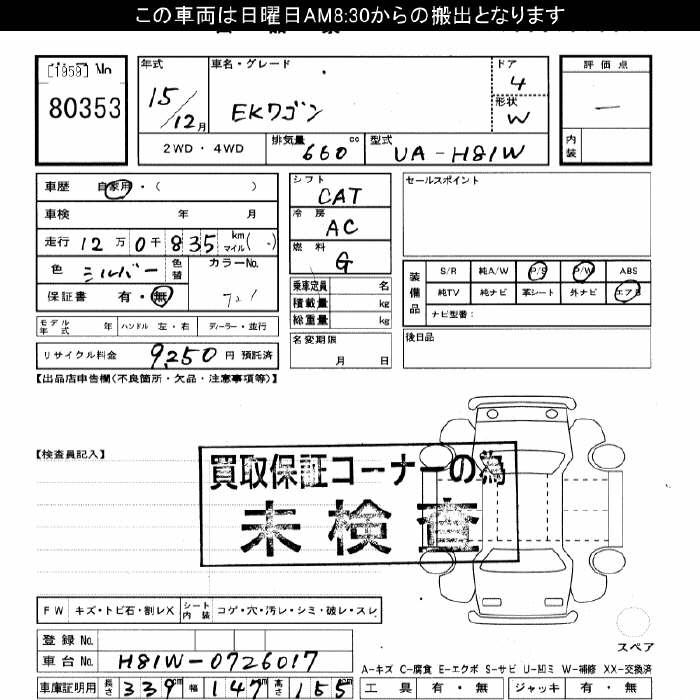 この車両は日曜日AM8:30からの搬出となります
[1959] No
80353
年式 車名・グレード ドア 評価点
15/12月 EKワゴン 4 —
形状 W
2WD・4WD 排気量 660 cc 型式 UA-H81W 内装
車歴 自家用・( )
車検 年 月
走行 12万0千835 km マイル( )
色 シルバー 色替 カラーNo.
保証書 有・無
モデル年式 年 ハンドル 左・右 ディーラー・並行
リサイクル料金 9,250 円 預託済
シフト CAT
冷房 AC
燃料 G
乗車定員 名
積載量 kg
総重量 kg
名変期限 月 日
セールスポイント
装備品 S/R 純A/W P/S P/W ABS
純TV 純ナビ 革シート 外ナビ エアB
ナビ型番:
後日品
【出品店申告欄(不良箇所・欠品・注意事項等)】
【検査員記入】
買取保証コーナーの為
未検査
FW キズ・トビ石・割レX シート内装 コゲ・穴・汚レ・シミ・破レ・スレ
登録No.
車台No. H81W-0726017
車庫証明用 長さ 339 cm 幅 147 cm 高さ 155 cm
スペア
A-キズ C-腐食 E-エクボ S-サビ U-凹ミ W-補修 XX-交換済
工具 有・無 ジャッキ 有・無